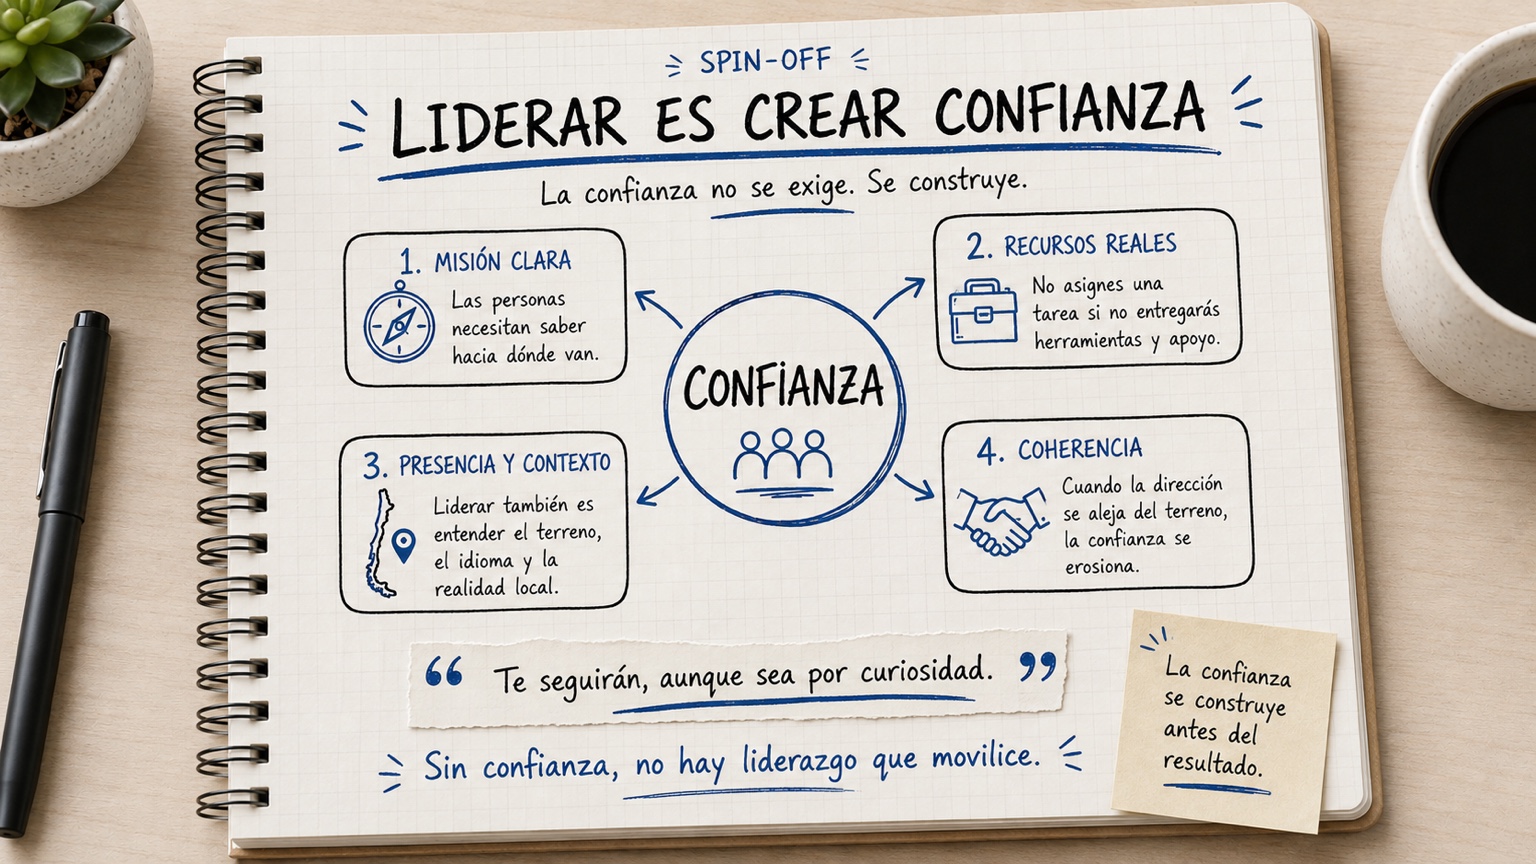 SPIN-OFF
LIDERAR ES CREAR CONFIANZA
La confianza no se exige. Se construye.
1. MISIÓN CLARA
Las personas
necesitan saber
hacia dónde van.
2. RECURSOS REALES
No asignes una
tarea si no entregarás
herramientas y apoyo.
CONFIANZA
3. PRESENCIA Y CONTEXTO
Liderar también es
entender el terreno,
el idioma y la
realidad local.
4. COHERENCIA
Cuando la dirección
se aleja del terreno,
la confianza se
erosiona.
“ Te seguirán, aunque sea por curiosidad. ”
Sin confianza, no hay liderazgo que movilice.
La confianza
se construye
antes del
resultado.